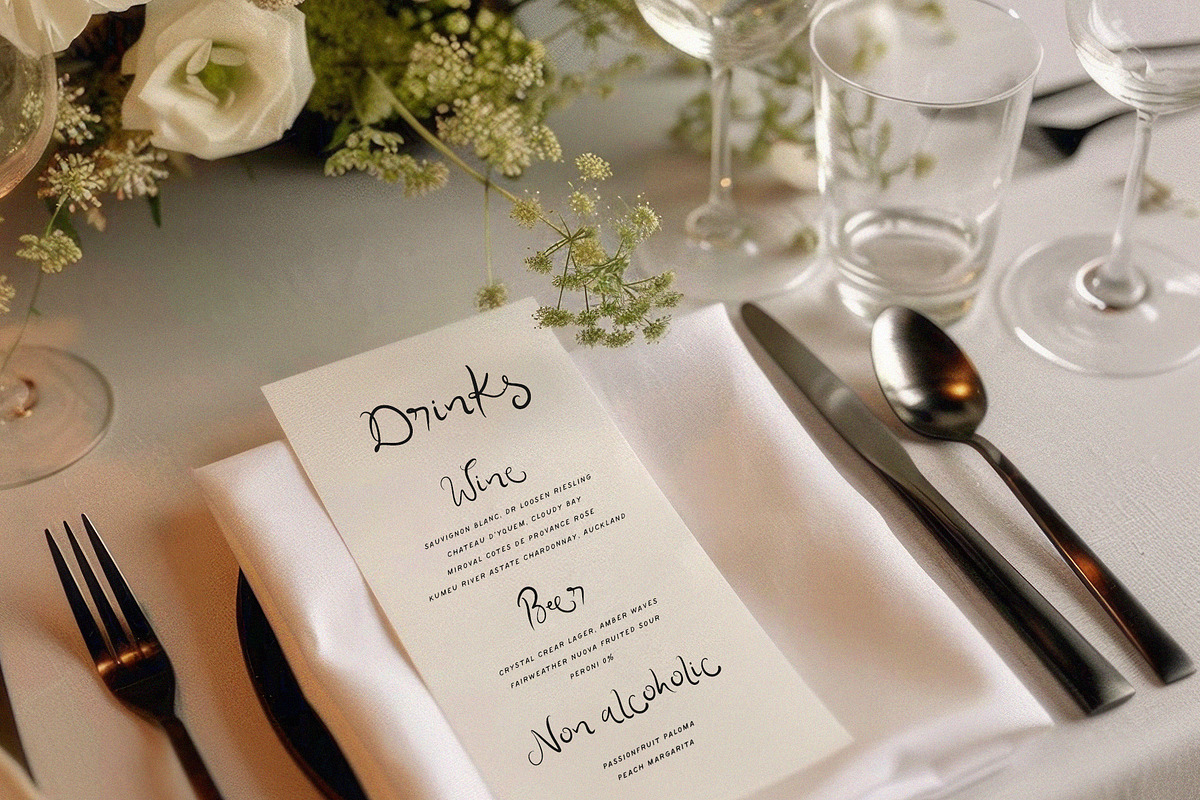 Drinks
Wine
SAUVIGNON BLANC, DR LOOSEN RIESLING
CHATEAU D'YQUEM, CLOUDY BAY
MIROVAL COTES DE PROVANCE ROSE
KUMEU RIVER ASTATE CHARDONNAY, AUCKLAND
Beer
CRYSTAL CREAR LAGER, AMBER WAVES
FAIRWEATHER NUOVA FRUITED SOUR
PERONI 0%
Non alcoholic
PASSIONFRUIT PALOMA
PEACH MARGARITA